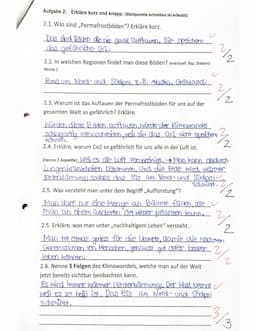 Aufgabe 2: Erkläre kurz und knapp: (Stichpunkte schreiben ist erlaubt!)
2.1. Was sind „Permafrostböden"? Erkläre kurz.
Das sind Böden die nie ganz auftauen. Sie speichern
das gefährliche Co2.
2/2
2.2. In welchen Regionen findet man diese Böden?
Nenne 2
Rund um Nord- und Südpol, z.B. Alaska, Grönland.
2/2
2.3. Warum ist das Auftauen der Permafrostböden für uns auf der
gesamten Welt so gefährlich? Erkläre.
Würden diese Böden auftauen, würde der Klimawandel
voranschreiten, weil sie das Co2 nicht speichern
2/2
2.4. Erkläre, warum Co2 so gefährlich für uns alle in der Luft ist.
(Nenne 2 Aspekte) Weil es die Luft verunreinigt. → Man kann dadurch
Lungenkrankheiten bekommen. Und die Erde wird wärmer
(Erderwärmung) sodass das Eis am Nord- und Südpol
schmilzt.
2/2
2.5. Was versteht man unter dem Begriff „Aufforstung"?
Man darf nur eine Menge an Bäume fällen, die
man an einem anderen Ort wieder pflanzen kann.
2/2
2.5. Erkläre, was man unter „nachhaltigem Leben" versteht.
Man tut etwas gutes für die Umwelt, damit die nächsten
Generationen von Menschen, genauso gut oder besser
leben können.
2/2
2.6. Nenne 3 Folgen des Klimawandels, welche man auf der Welt
jetzt bereits sichtbar beobachten kann.
Es wird immer wärmer (Erderwärmung). Der Wald brennt
weil es so heiß ist. Das Eis am Nord- und Südpol
schmilzt.
3/3